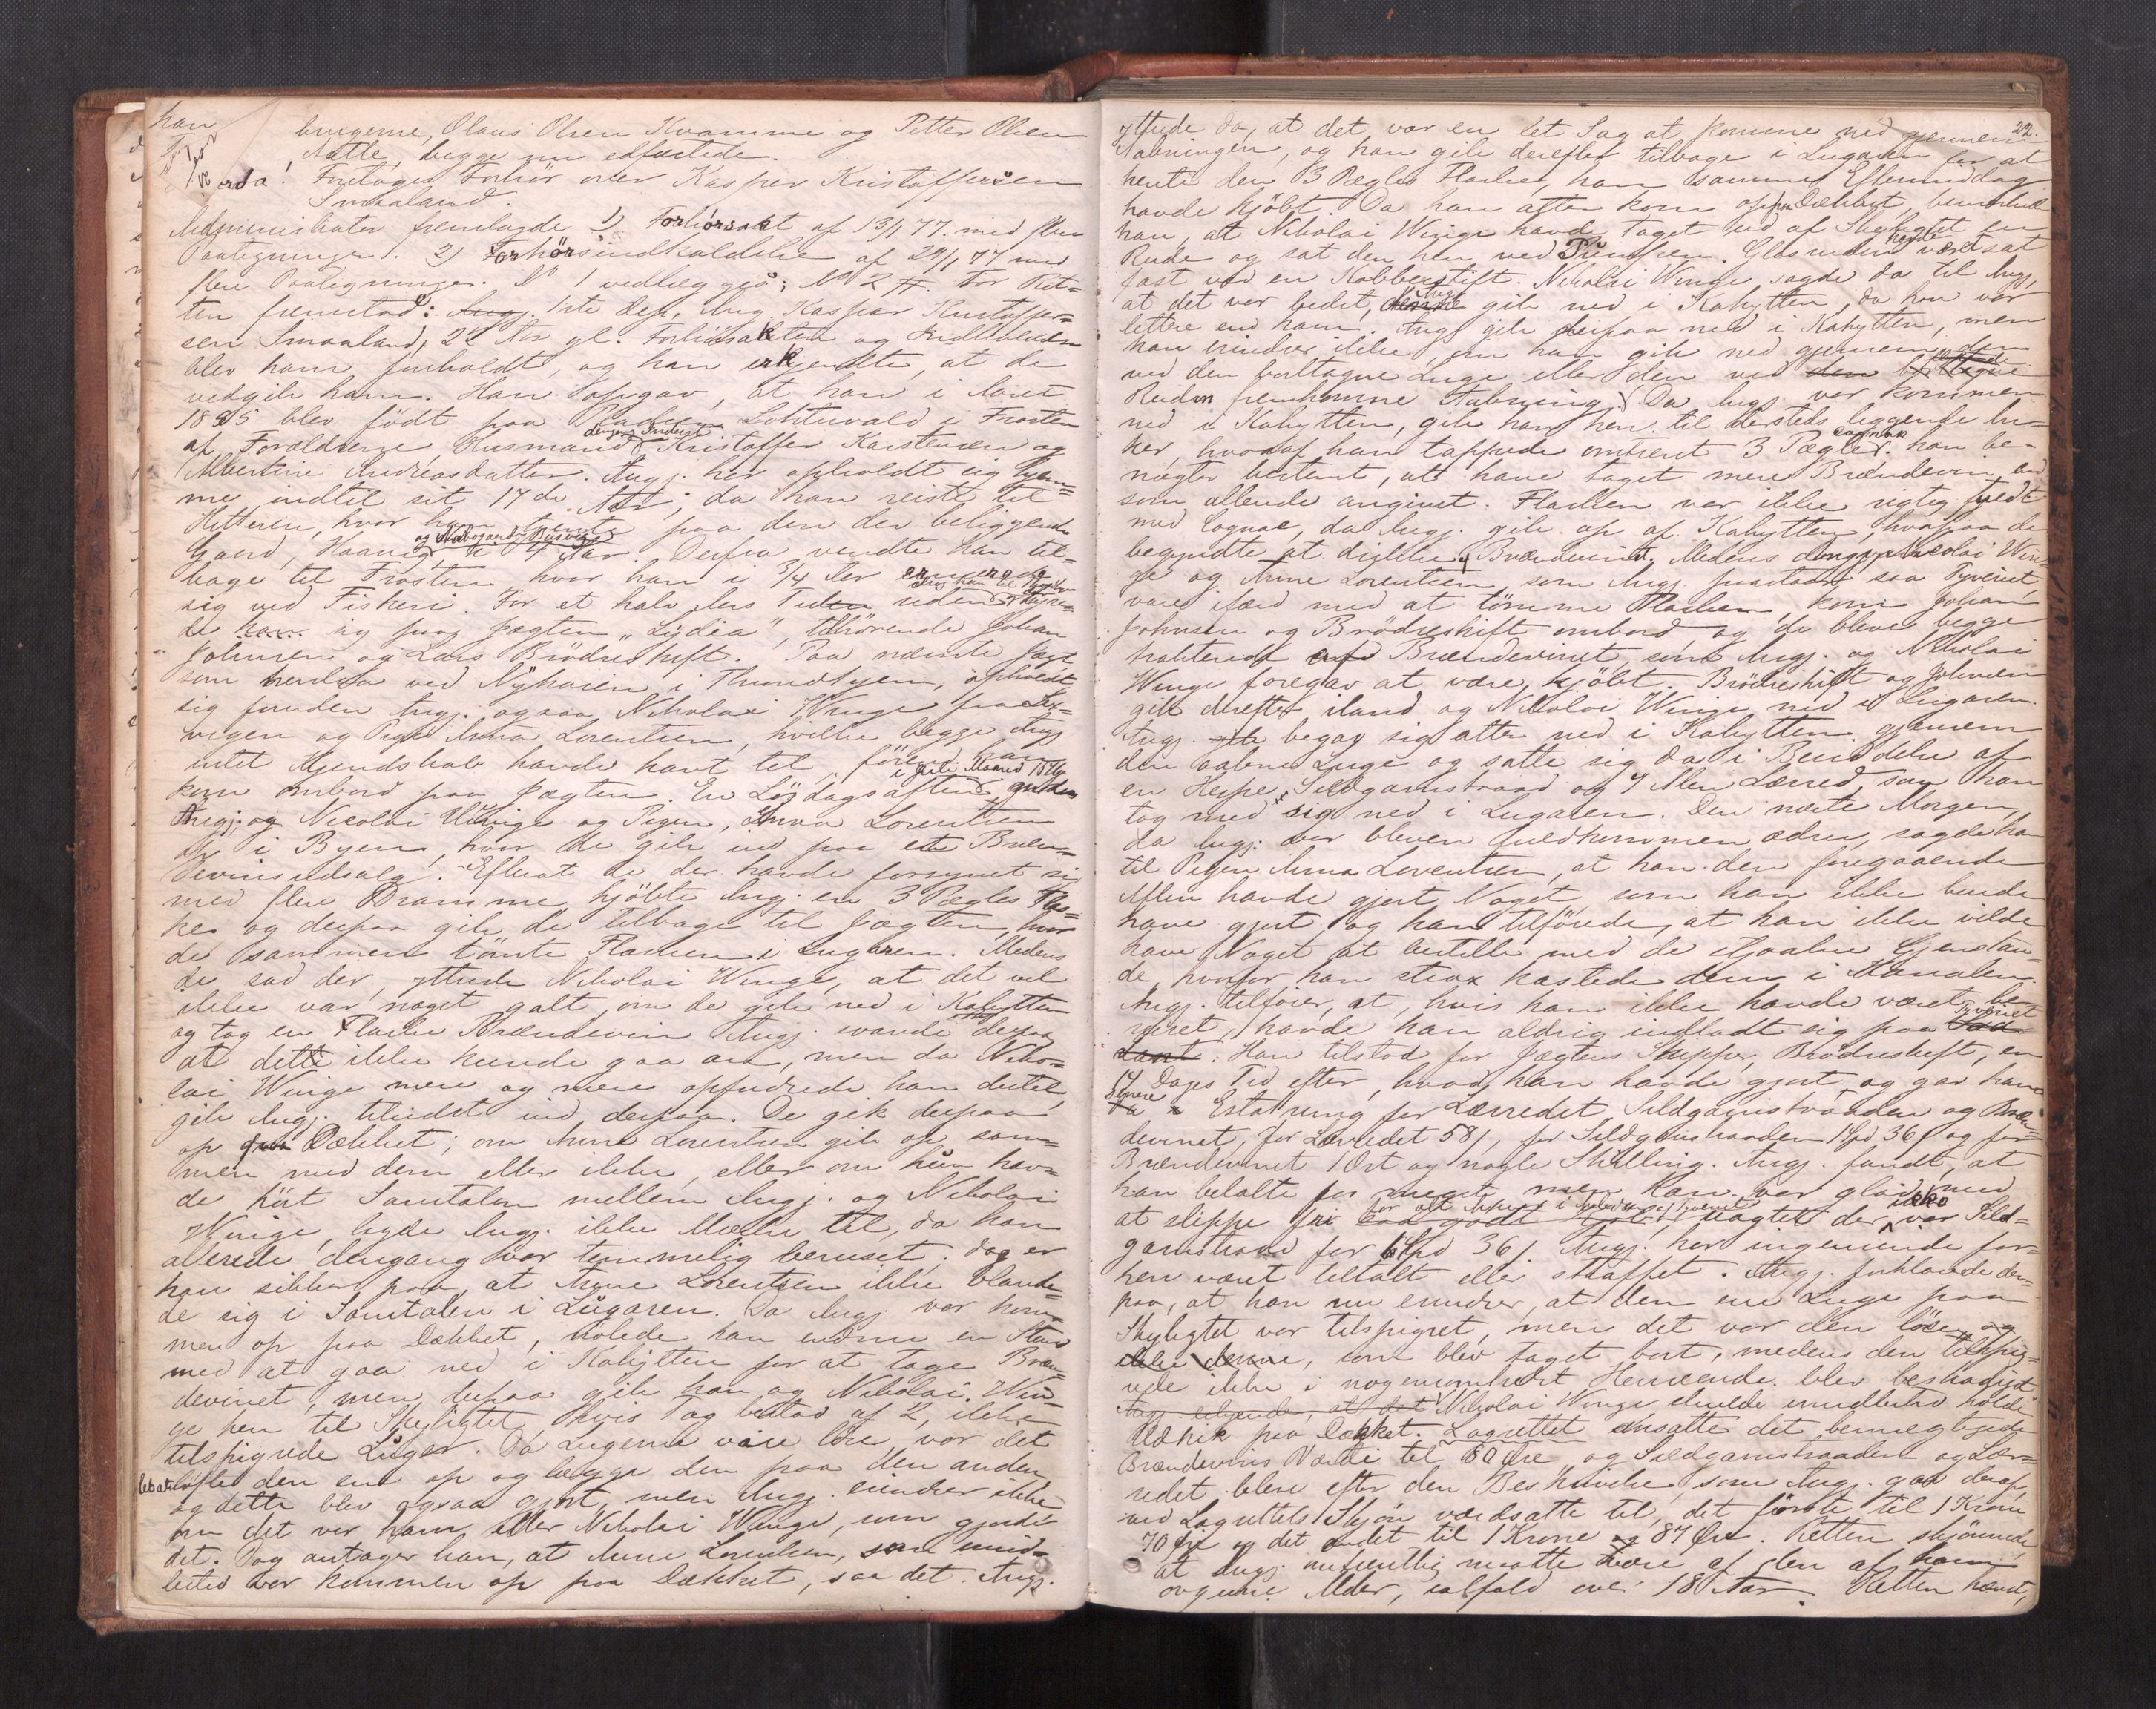 han
brugerne, Olaus Olsen Kvamme og Petter Olsen
Aatte, begge nu edfæstede.
erda: Foretoges Forhör over Kasper Kristoffersen
Smaaland.
Administrator fremlagde 1) Forhörsakt af 13/1 77. med flere
Paategninger. 2) Forhörsindkaldelse af 29/1 77 med
flere Paategninger. No 1 vedlægges; No 2 For Ret=
ten fremstod: 1ste dep. Ang. Kasper Kristoffer=
sen Smaaland, 22 Aar gl. Forhörsakten og Indkaldelsen
blev ham foreholdt, og han erkjendte, at de
vedgik ham. Han opgav, at han i Aaret
1855 blev födt paa Pladsen Lohterwald i Frosten
af Forældrene, Husmand Kristoffer Karstensen og
Albertine Andreasdatter. Angj. har opholdt sig hjem=
me indtil sit 17de Aar; da han reiste til
Hitteren, hvor han tjente paa den der beliggende
Gaard, Haavig i 4 Aar. Derfra vendte han til=
bage til Frosten hvor han i 3/4 Aar ernærede
sig ved Fiskeri. For et halv Aars Tid siden
de sig paa Jægten "Lydia", tilhörende Johan
Johnsen og Lars Brödreskift. Paa nævnte Jægt,
som henlaa ved Nyhavn i Throndhjem, opholdt
sig foruden Angj. ogsaa Nikolai Winge fra Lex=
vigen og Pigen Anna Lorentsen, hvilke begge Angj
intet Kjendskab havde havt til för han
kom ombord paa Jægten. En Löjdagsaften
Angj. og Nicolai Winge og Pigen, Anna Lorentsen
op i Byen, hvor de gik ind paa ett Bræn=
devinsudsalg. Efterat de der havde forsynet sig
med flere Dramme, kjöbte Angj. en 3 Pægles Flas=
ke og derpaa gik de tilbage til Jægten, hvor
de sammen tömte Flasken i Lugaren. Medens
de sad der, yttrede Nikolai Winge, at det vel
ikke var noget galt, om de gik ned i Kahytten
og tog en Flaske Brændevin. Angj. svarede derpaa
at dette ikke kunde gaa an, men da Niko=
lai Winge mere og mere opfordrede ham dertil,
gik Angj. tilsidst ind derpaa. De gik derpaa
op paa Dækket; om Anna Lorentsen gik op sam=
men med dem eller ikke, eller om hun hav=
de hört Samtalen mellem Angj. og Nikolai
Winge, lagde Angj. ikke Mærke til, da han
allerede dengang var temmelig beruset; dog er
han sikker paa, at Anne Lorentsen ikke blande=
de sig i Samtalen i Lugaren. Da Angj. var kom=
men op paa Dækket, nölede han endnu en Stund
med at gaa ned i Kahytten for at tage Bræn=
devinet, men derpaa gik han og Nikolai Win=
ge hen til Skyligtet, hvis Tag bestod af 2, ikke
tilspigrede Luger. Da Lugerne vare löse, var det
let at löfte den ene op og lægge den paa den anden,
og dette blev ogsaa gjort, men Angj. erindrer ikke
om det var ham eller Nikolai Winge, som gjorde
det. Dog antager han, at Anne Lorentsen, som imid=
lertid var kommen op paa Dækket, saa det. Angj.
22.
yttrede da, at det var en let Sag at komme ned gjennem
Aabningen, og han gik derefter tilbage i Lugaren for at
hente den 3 Pægles Flaske, han samme Eftermiddag
havde kjöbt. Da han atter kom op paa Dækket, bemærkede
han, at Nikolai Winge havde taget ud af Skyligtet en
Rude og sat den hen ved Pumpen. Glasruden havde været sat
fast ved en Kobberstift. Nikolai Winge sagde da til Angj,
at det var bedst, Angj. gik ned i Kahytten, da han var
lettere end ham. Angj. gik derpaa ned i Kahytten, men
han erindrer ikke, om han gik ned gjennem den
ved den borttagne Luge eller den ved den borttagne
Ruden fremkomne Aabning. Da Angj. var kommen
ned i Kahytten, gik han hen til dersteds liggende An=
ker, hvoraf han tappede omtrent 3 Pægler cognac. han be=
nægter bestemt, at have taget mere Brændevin, end
som allerede angivet. Flasken var ikke rigtig fyldt
med Cognac, da Angj. gik op af Kahytten, hvorpaa de
begyndte at drikke Brændevinet. Medens Angj., Nicolai Win=
ge og Anne Lorentsen, som Angj. paastaar saa Tyveriet,
vare ifærd med at tömme Flasken, kom Johan
Johnsen og Brödreskift ombord og de bleve begge
trakterede med Brændevinet, som Angj. og Nikolai
Winge foregav at være kjöbt. Brödreskift og Johnsen
gik derefter iland og Nikolai Winge ned i Lugaren.
Angj. begav sig atter ned i Kahytten gjennem
den aabne Luge og satte sig da i Besiddelse af
en Hespe Sildgarnstraad og 7 Alen Lærred, som han
tog med sig ned i Lugaren. Den næste Morgen,
da Angj. var bleven fuldkommen ædru, sagde han
til Pigen Anna Lorentsen, at han den foregaaende
Aften havde gjort Noget, som han ikke burde
have gjort og han tilföiede, at han ikke vilde
have Noget at bestille med de stjaalne Gjenstan=
de, hvorfor han strax kastede dem i Kanalen.
Angj. tilföier, at, hvis han ikke havde været be=
ruset, havde han aldrig indladt sig paa Tyveriet
Han tilstod for Jægtens Skipper, Brödreskift, en
14 Dages Tid efter, hvad han havde gjort og gav ham
Senere Erstatning for Lærredet, Sildgarnstraaden og Bræn=
devinet, for Lærredet 58 /, for Sildgarnstraaden 1 Spd 36 / og for
Brændevinet 1 Ort og nogle Skilling. Angj. fandt, at
han betalte for meget, men han var glad ved
at slippe fri uagtet der ikke var Sild=
garnstraad for 1 Spd 36 /. Angj. har ingensinde för
hen været tiltalt eller straffet. Angj. forklarede der=
paa, at han nu erindrer, at den ene Luge paa
Skyligtet var tilspigret, men det var den löse og
ikke denne, som blev taget bort, medens den tilspig=
rede ikke i nogensomhelst Henseende blev beskadiget.
Nikolai Winge skulde imidlertid holde
Udkik paa Dækket. Lagrettet ansatte det bemægtigede
Brændevins Værdi til 80 Öre og Sildgarnstraaden og Lær=
redet blev efter den Beskrivelse, som Angj. gav deraf,
ved Lagrettets Skjön værdsatte til, det förste til 1 Krone
70 Öre og det andet til 1 Krone og 87 Öre. Retten skjönnede,
at Angj. antagelig maatte være af den af ham
opgivne Alder, ialfald over 18 Aar. Retten hævet,